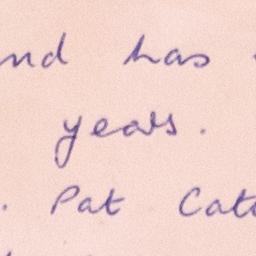 nd has
years.
. Pat Cat